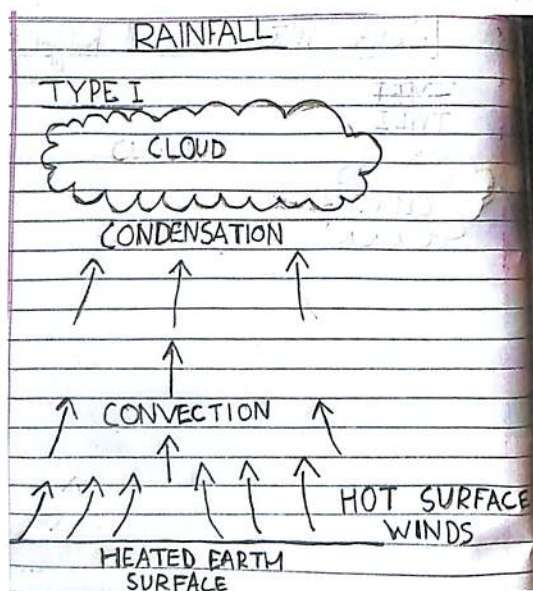 RAINFALL
TYPE I
CLOUD
CONDENSATION
CONVECTION
HOT SURFACE
WINDS
HEATED EARTH
SURFACE